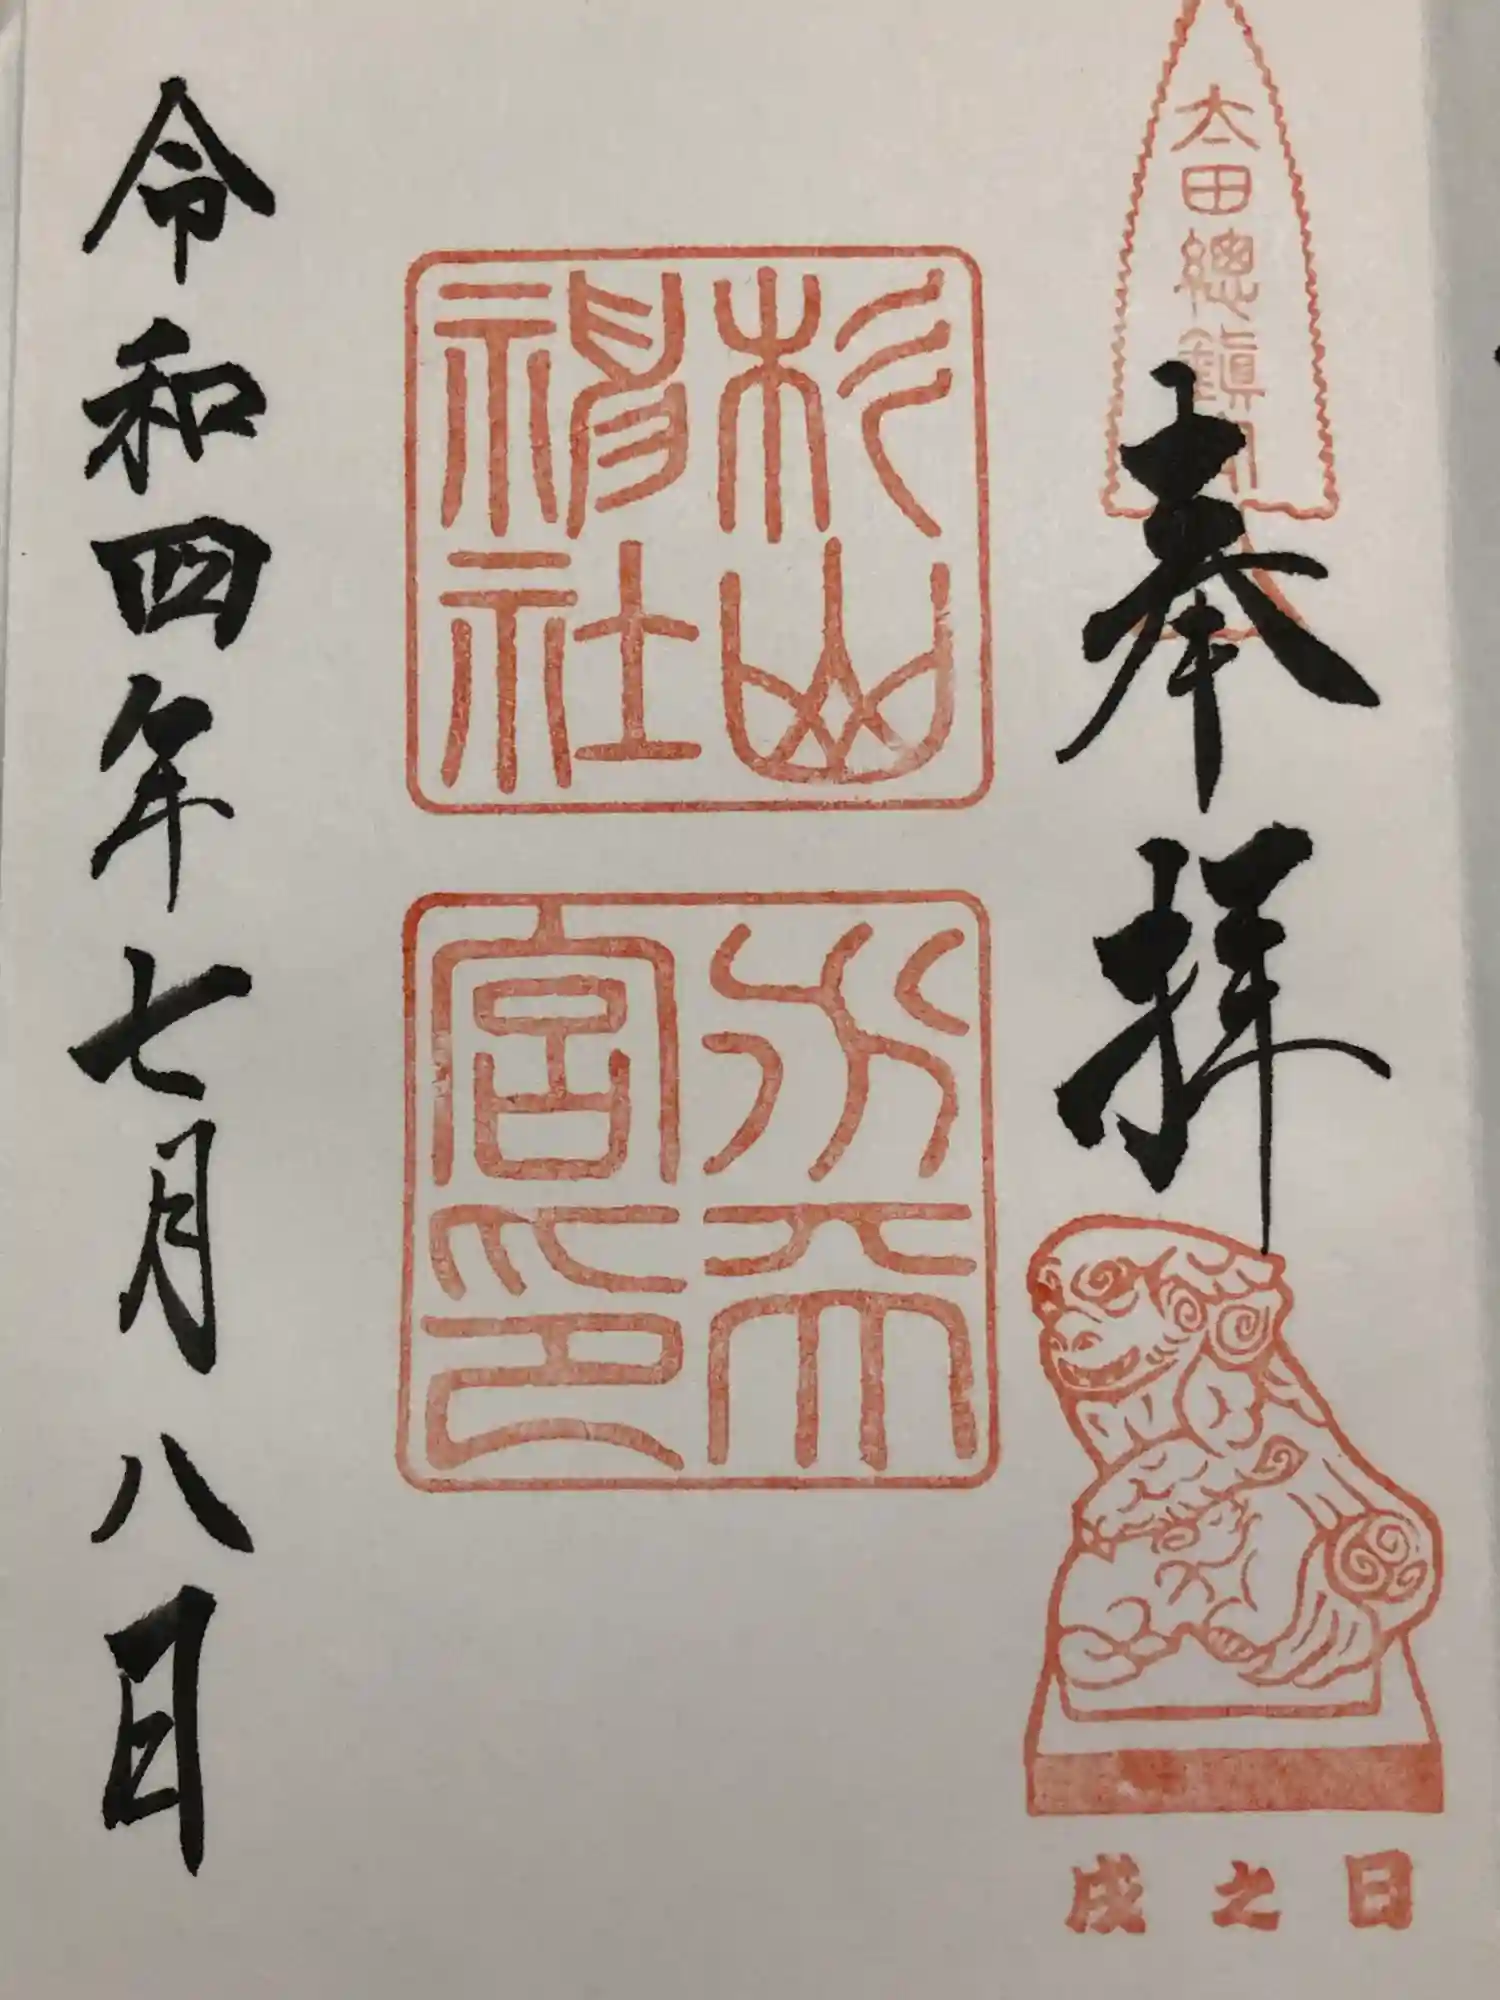 太田總鎮
奉拝
杉山
神社
水天
宮印
令和四年七月八日
戌之日